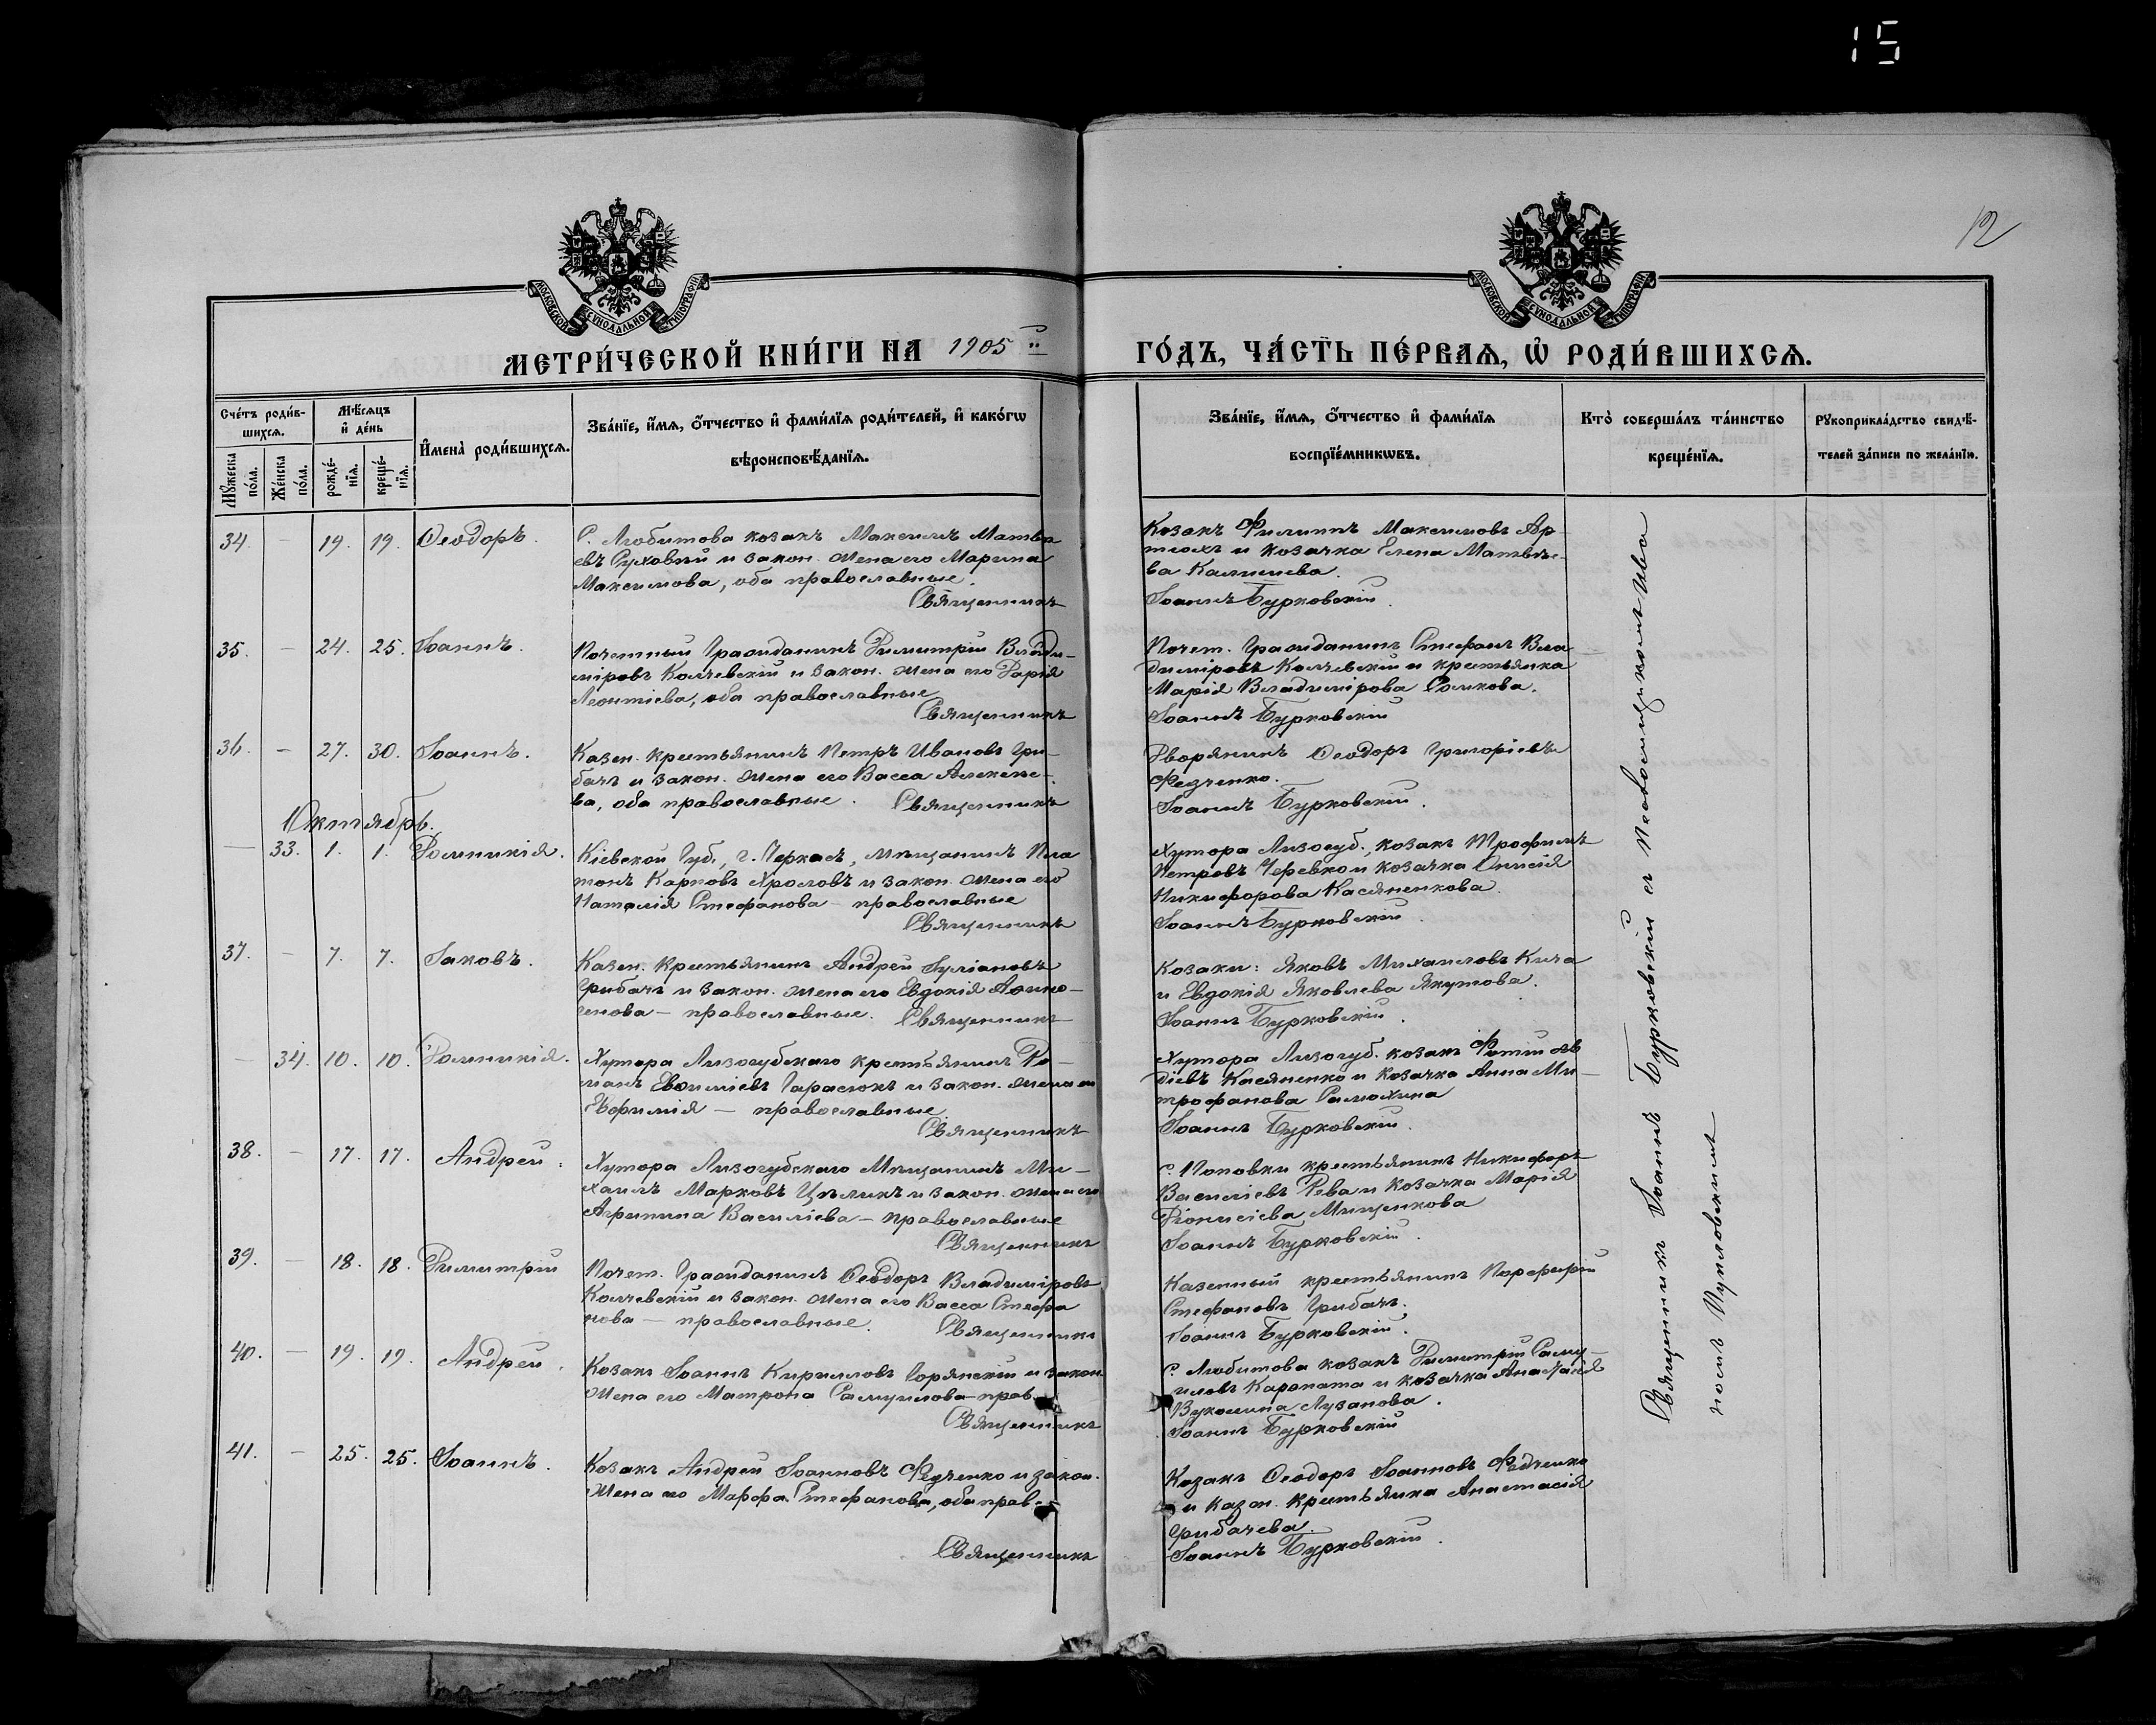 15
12
МОСКОВСКОЙ СѴНОДАЛЬНОЙ ТИПОГРАФІИ
МОСКОВСКОЙ СѴНОДАЛЬНОЙ ТИПОГРАФІИ
МЕТРИ́ЧЕСКОЙ КНИ́ГИ НА 1905 й
ГО́ДЪ, ЧА́СТЬ ПЕ́РВАѦ, Ѡ҆ РОДИ́ВШИХСѦ.
Сче́тъ роди́в-
шихсѧ.
Мꙋ́жеска по́ла.
Же́нска по́ла.
Мѣ́сѧцъ
и҆ де́нь
рожде́-
нїѧ.
креще́-
нїѧ.
И҆мена̀ роди́вшихсѧ.
Зва́нїе, и҆́мѧ, ѻ҆́тчество и҆ фами́лїѧ роди́телей, и҆ како́гѡ
вѣроисповѣ́данїѧ.
Зва́нїе, и҆́мѧ, ѻ҆́тчество и҆ фами́лїѧ
воспрїе́мникѡвъ.
Кто̀ соверша́лъ та́инство
креще́нїѧ.
Рꙋкоприкла́дство свидѣ́-
телей за́писи по жела́нїю.
34. — 19. 19. Ѳеодоръ.
С. Любитова козакъ Максимъ Матѳе
евъ Суховый и закон. жена его Марина
Максимова, оба православные.
Священникъ
Козакъ Филиппъ Максимовъ Ар-
тюхъ и козачка Елена Матвѣе-
ва Калишева.
Іоаннъ Бурковскій.
35. — 24. 25. Іоаннъ.
Почетный Гражданинъ Димитрій Влади-
міровъ Колчевскій и закон. жена его Дарія
Леонтіева, оба православные
Священникъ
Почет. Гражданинъ Стефанъ Вла-
диміровъ Колчевскій и крестьянка
Марія Владимірова Сомкова.
Іоаннъ Бурковскій
36. — 27. 30. Іоаннъ.
Казен. крестьянинъ Петръ Ивановъ Гри-
бачъ и закон. жена его Васса Алексѣе-
ва, оба православные. Священникъ
Дворянинъ Ѳеодоръ Григоріевъ
Федченко.
Іоаннъ Бурковскій.
Октябрь.
— 33. 1. 1. Домникія.
Кіевской Губ., г. Черкасъ, мѣщанинъ Пла
тонъ Карповъ Хроловъ и закон. жена его
Наталія Стефанова — православные
Священникъ
Хутора Лизогуб., козакъ Трофимъ
Петровъ Черевко и козачка Онисія
Никифорова Касяненкова.
Іоаннъ Бурковскій
37. — 7. 7. Іаковъ.
Казен. крестьянинъ Андрей Іуліановъ
Грибачъ и закон. жена его Евдокія Аѳино-
генова — православные. Священникъ
Козаки: Яковъ Михаиловъ Кича
и Евдокія Яковлева Якутова.
Іоаннъ Бурковскій.
— 34. 10. 10. Домникія.
Хутора Лизогубскаго крестьянинъ Ро-
манъ Евѳиміевъ Гарасюкъ и закон. жена его
Евфимія — православные
Священникъ
Хутора Лизогуб. козакъ Фотій Ав
діевъ Касяненко и козачка Анна Ми-
трофанова Самохина
Іоаннъ Бурковскій.
38. — 17. 17. Андрей.
Хутора Лизогубскаго Мѣщанинъ Ми-
хаилъ Марковъ Цѣликъ и закон. жена его
Агрипина Василіева — православные
Священникъ
с. Поповки крестьянинъ Никифоръ
Василіевъ Рева и козачка Марія
Діонисіева Мищенкова
Іоаннъ Бурковскій.
39. — 18. 18. Димитрій
Почет. Гражданинъ Ѳеодоръ Владиміровъ
Колчевскій и закон. жена его Васса Стефа
нова — православные. Священникъ
Казенный крестьянинъ Порфирій
Стефановъ Грибачъ.
Іоаннъ Бурковскій.
40. — 19. 19. Андрей.
Козакъ Іоаннъ Кирилловъ Горянскій и закон.
жена его Матрона Самуилова — прав.
Священникъ
С. Любитова козакъ Димитрій Саму-
иловъ Карапата и козачка
Лузанова.
Іоаннъ Бурковскій
41. — 25. 25. Іоаннъ.
Козакъ Андрей Іоанновъ Федченко и закон.
Жена его Марфа Стефанова, оба прав.
Священникъ
Козакъ Ѳеодоръ Іоанновъ Федченко
и казен. крестьянка Анастасія
Грибачева.
Іоаннъ Бурковскій.
Священникъ Іоаннъ Бурковскій съ Псаломщикомъ Ива
номъ